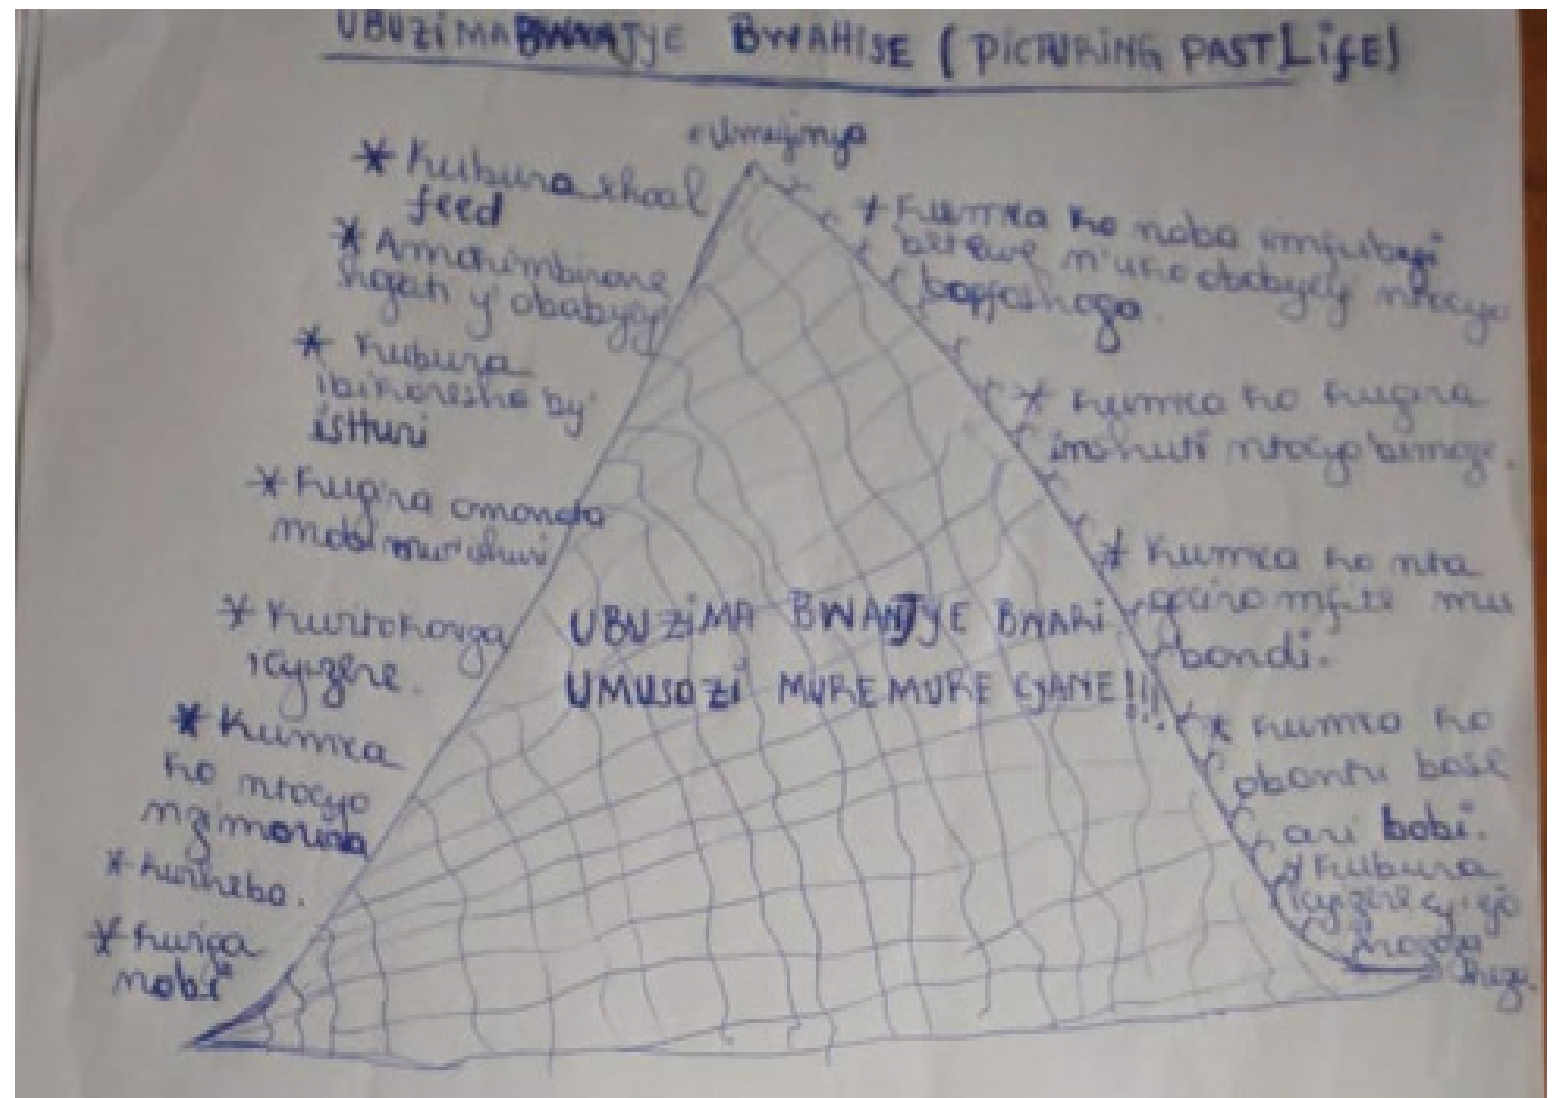 UBUZIMA BWANJYE BWAHISE (PICTURING PAST LIFE)
Umujinya
* Kubura shool
feed
* Amakimbirane
hagati y'ababyeyi
* Kubura
ibikoresho by'
ishuri
* Kugira amanota
mabi mu ishuri
* Kwitakariza
icyizere.
* Kumva
ko ntacyo
nzimarira
* Kwiheba.
* Kwiga
nabi
* Kumva ko naba imfubyi
bitewe n'uko ababyeyi ntacyo
bapfashaga.
* Kumva ko kugira
inshuti ntacyo bimaze.
* Kumva ko nta
gaciro mfite mu
bandi.
* Kumva ko
abantu bose
ari babi.
* Kubura
icyizere cy'ejo
hazaza
UBUZIMA BWANJYE BWARI
UMUSOZI MUREMURE CYANE!!!